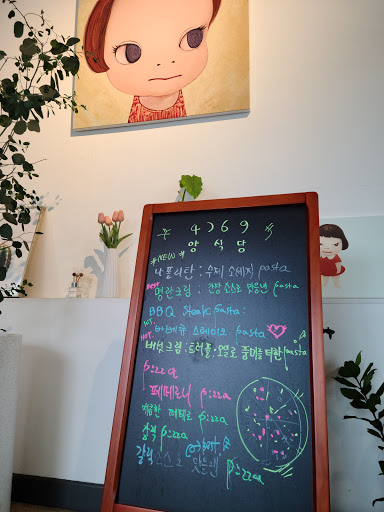 4769
양 식 당
*NEW*
나폴리탄 : 수제 소세지 pasta
명란크림 : 간장 소스로 맛을낸 pasta
BBQ Steak pasta :
HOT 바베큐 스테이크 pasta
HOT 버섯크림 : 트러플 오일로 풍미를 더한 pasta
pizza
페페로니 pizza
매콤한 페페로 pizza
찰떡 pizza
갈릭소스로 맛을낸 pizza